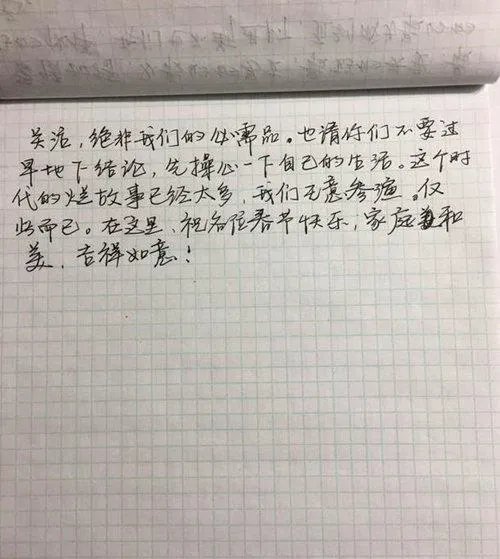 关注，绝非我们的必需品。也请你们不要过
早地下结论，先操心一下自己的生活。这个时
代的烂故事已经太多，我们无意参演。仅
此而已。在这里，祝各位春节快乐，家庭和
美，吉祥如意！